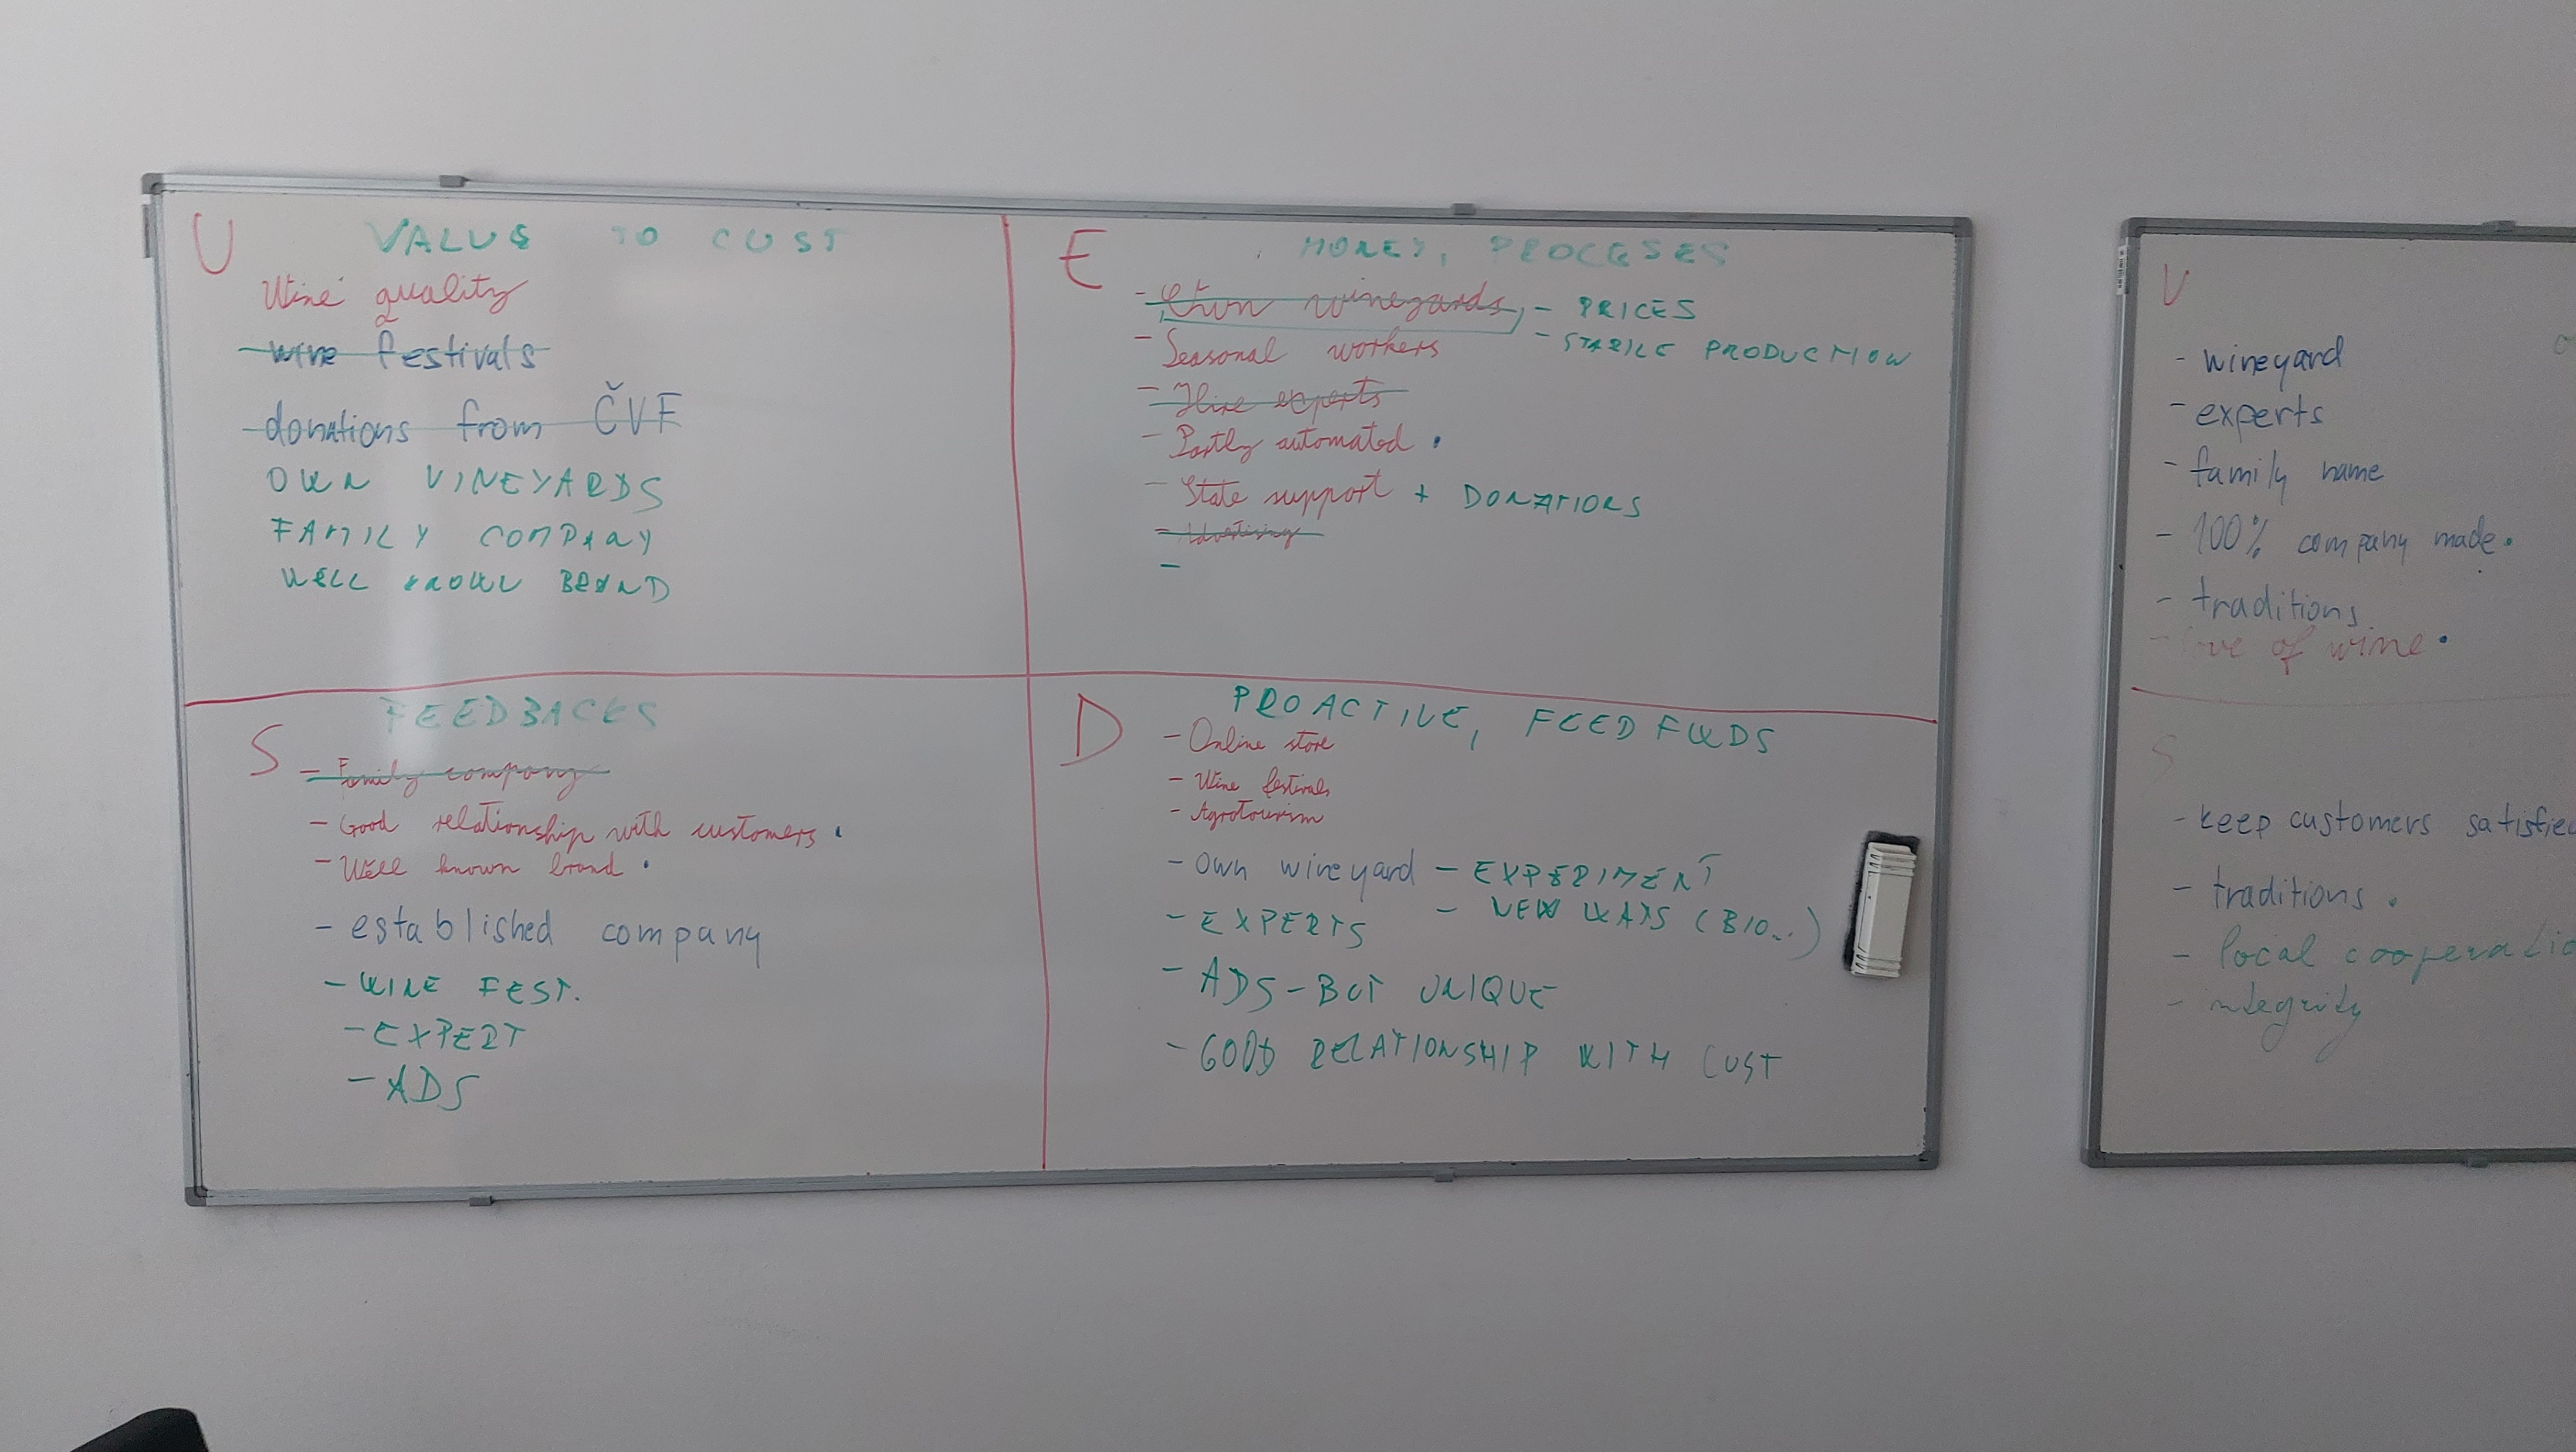 U VALUE TO COST
Wine quality
- wine festivals
- donations from ČVF
OWN VINEYARDS
FAMILY COMPANY
WELL KNOWN BRAND
E MONEY, PROCESES
- Own wineyards - PRICES
- STABILE PRODUCTION
- Seasonal workers
- Hire experts
- Partly automated
- State support + DONATIONS
- Advertising
-
FEEDBACKS
S
- Family company
- Good relationship with customers
- Well known brand
- established company
- WINE FEST.
- EXPERT
- ADS
D PROACTIVE, FEED FWDS
- Online store
- Wine festivals
- Agrotourism
- Own wineyard - EXPERIMENT
- NEW WAYS (BIO...)
- EXPERTS
- ADS - BUT UNIQUE
- GOOD RELATIONSHIP WITH CUST
V
- wineyard
- experts
- family name
- 100% company made
- traditions
- love of wine
S
- keep customers satisfied
- traditions
- local cooperatio
- integrity